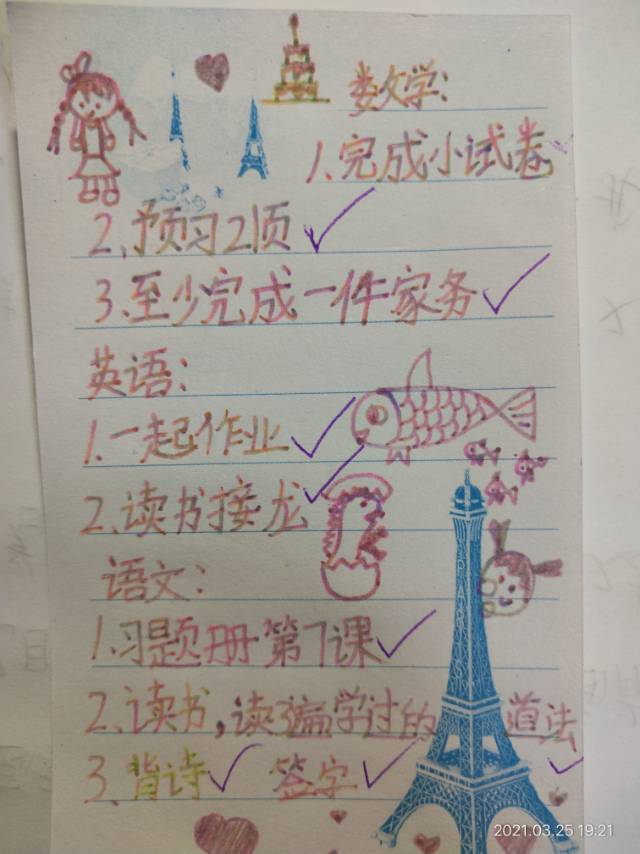 数学：
1.完成小试卷
2.预习21页
3.至少完成一件家务
英语：
1.一起作业
2.读书接龙
语文：
1.习题册第7课
2.读书，读3遍学过的 道法
3.背诗 签字
2021.03.25 19:21